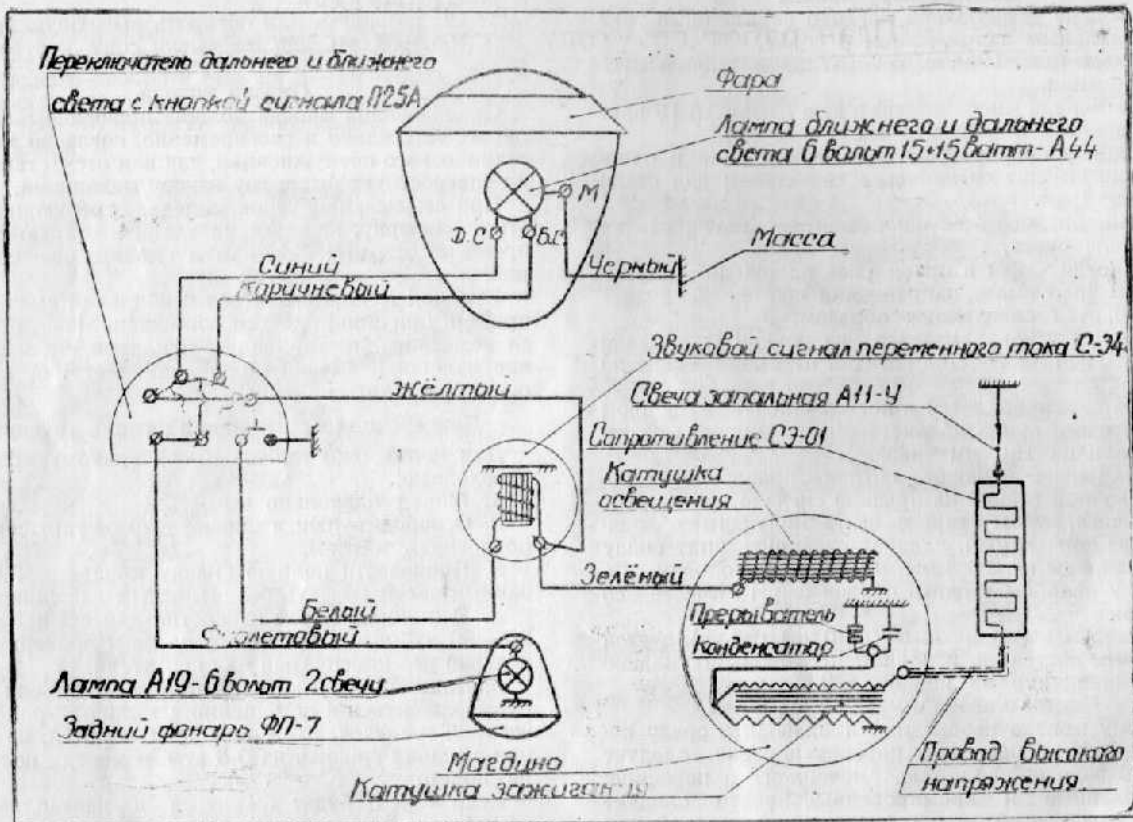 Переключатель дальнего и ближнего
света с кнопкой сигнала П25А
Фара
Лампа ближнего и дальнего
света 6 вольт 15+15 ватт - А44
М
Д.С
Б.С
Масса
Синий
Коричневый
Черный
Звуковой сигнал переменного тока С-34
Жёлтый
Свеча запальная А11-У
Сопративление СЭ-01
Катушка
освещения
Зелёный
Прерыватель
Конденсатор
Белый
Фиолетовый
Лампа А19-6 вольт 2 свечи
Задний фонарь ФП-7
Магдино
Катушка зажигания
Провод высокого
напряжения